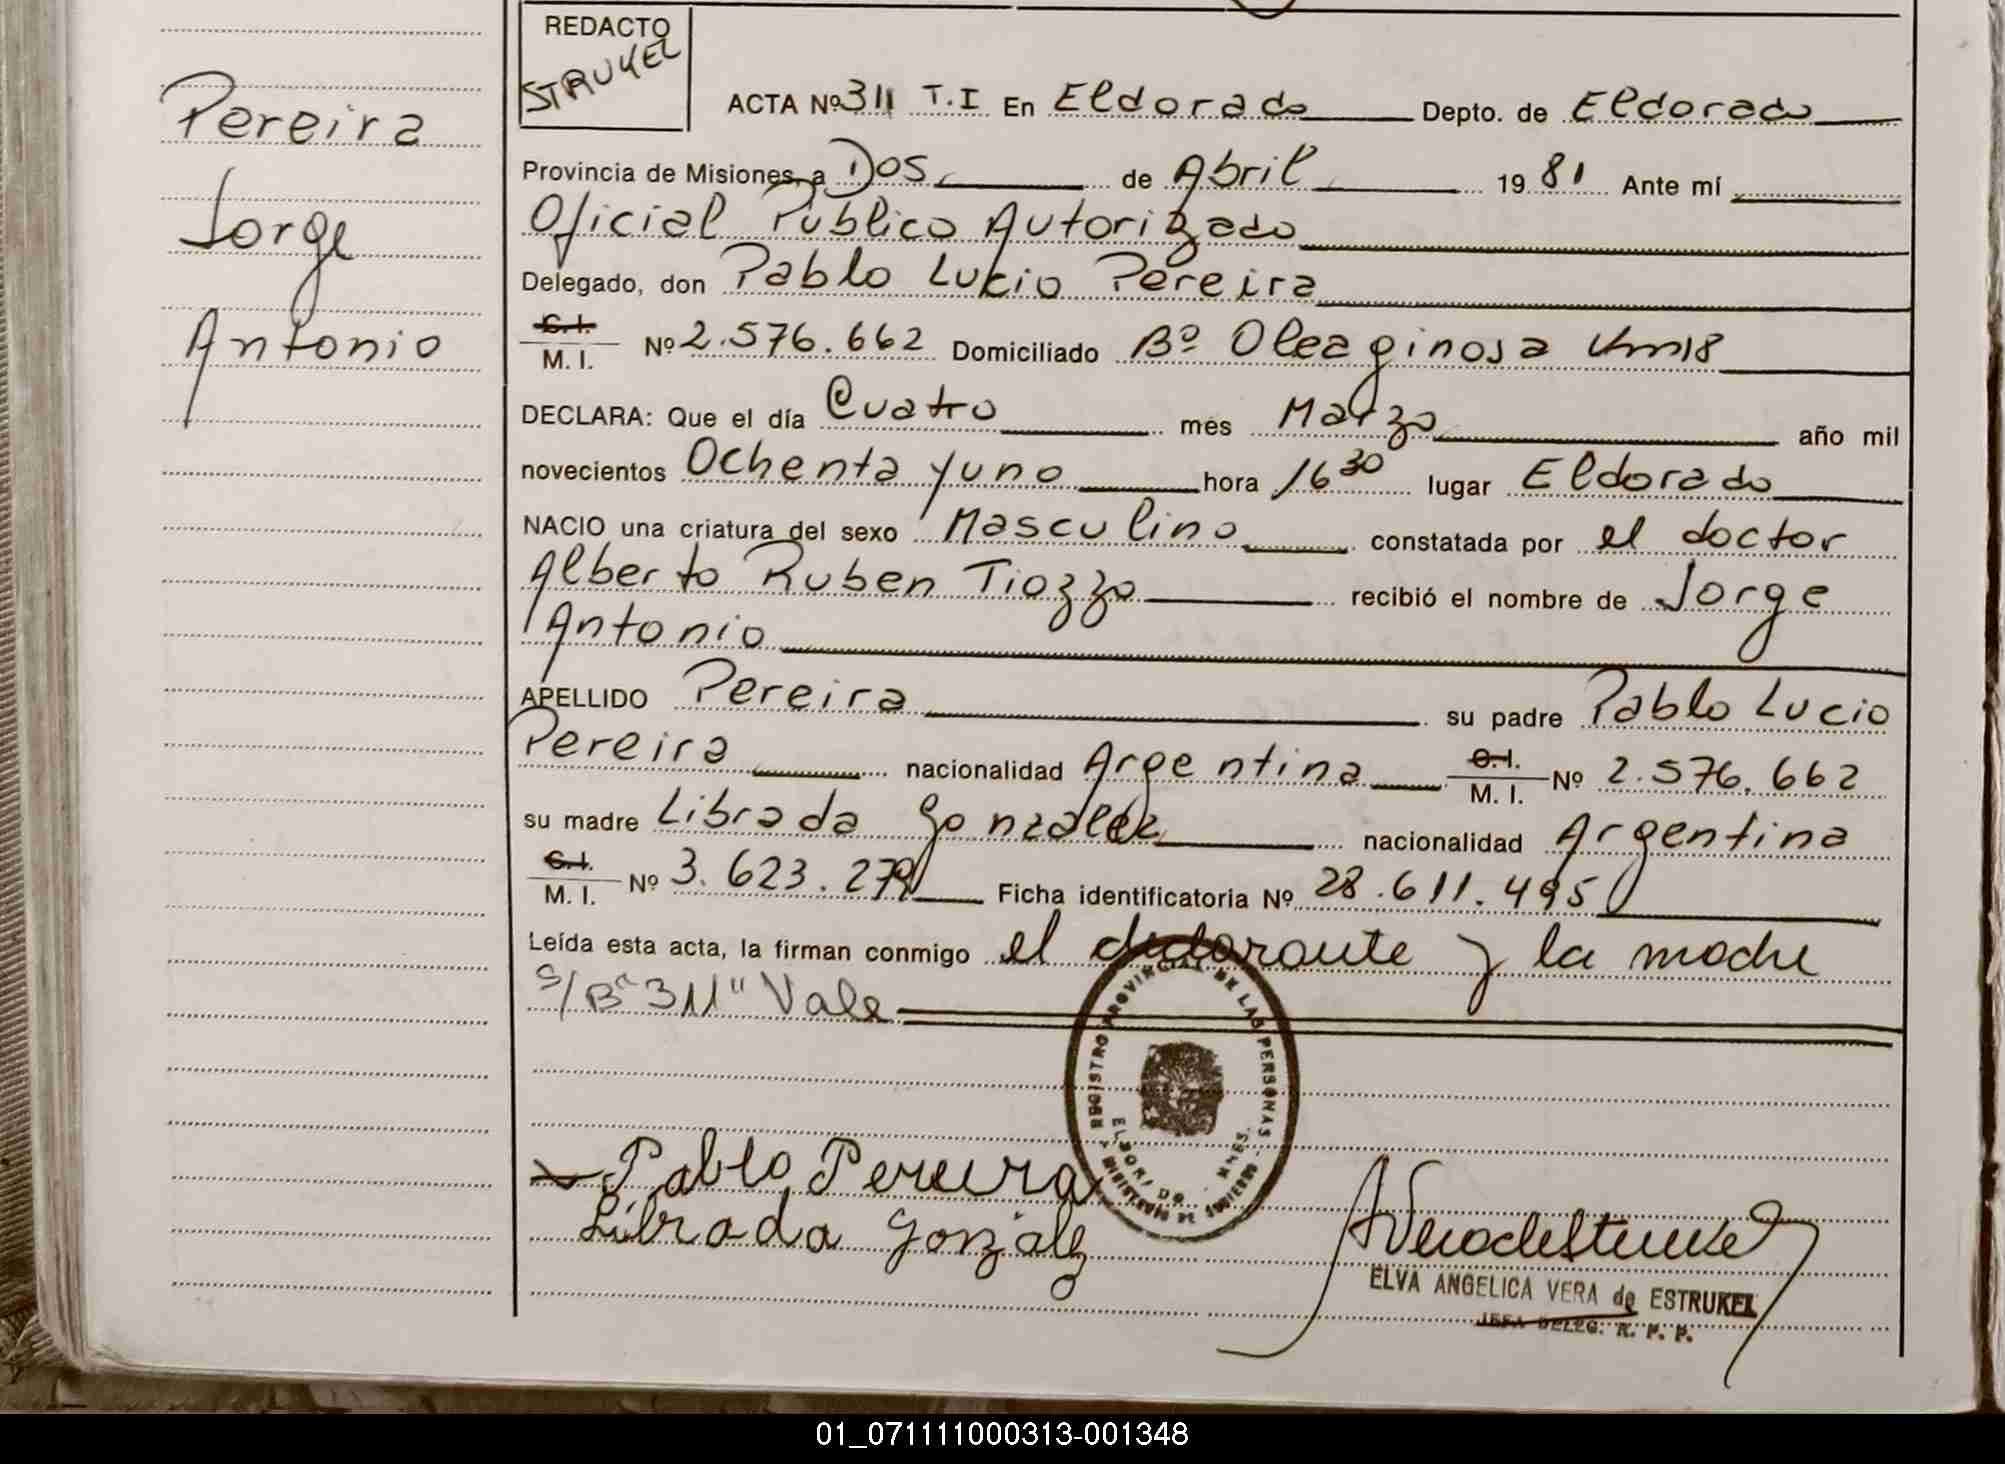 Pereira
Jorge
Antonio
REDACTO
STRUKEL
ACTA Nº 311 T.I En Eldorado Depto. de Eldorado
Provincia de Misiones, a Dos de Abril 19 81 Ante mí
Oficial Publico Autorizado
Delegado, don Pablo Lucio Pereira
C.I. M. I. Nº 2.576.662 Domiciliado Bº Oleaginosa Km 18
DECLARA: Que el día Cuatro mes Marzo año mil
novecientos Ochenta y uno hora 16 30 lugar Eldorado
NACIO una criatura del sexo Masculino constatada por el doctor
Alberto Ruben Tiozzo recibió el nombre de Jorge
Antonio
APELLIDO Pereira su padre Pablo Lucio
Pereira nacionalidad Argentina C.I. M. I. Nº 2.576.662
su madre Librada Gonzalez nacionalidad Argentina
C.I. M. I. Nº 3.623.279 Ficha identificatoria Nº 28.611.495
Leída esta acta, la firman conmigo el declarante y la madre
s/Bº 311" Vale
REGISTRO PROVINCIAL DE LAS PERSONAS
ELDORADO MNES.
MINISTERIO DE GOBIERNO
Pablo Pereira
Librada Gonzalez
ELVA ANGELICA VERA de ESTRUKEL
JEFA DELEG. R. P. P.
01_071111000313-001348